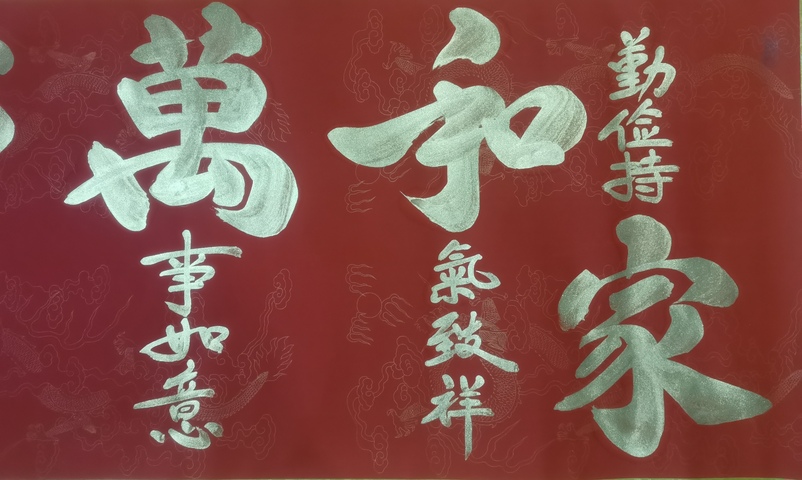 勤俭持家
和氣致祥
萬事如意